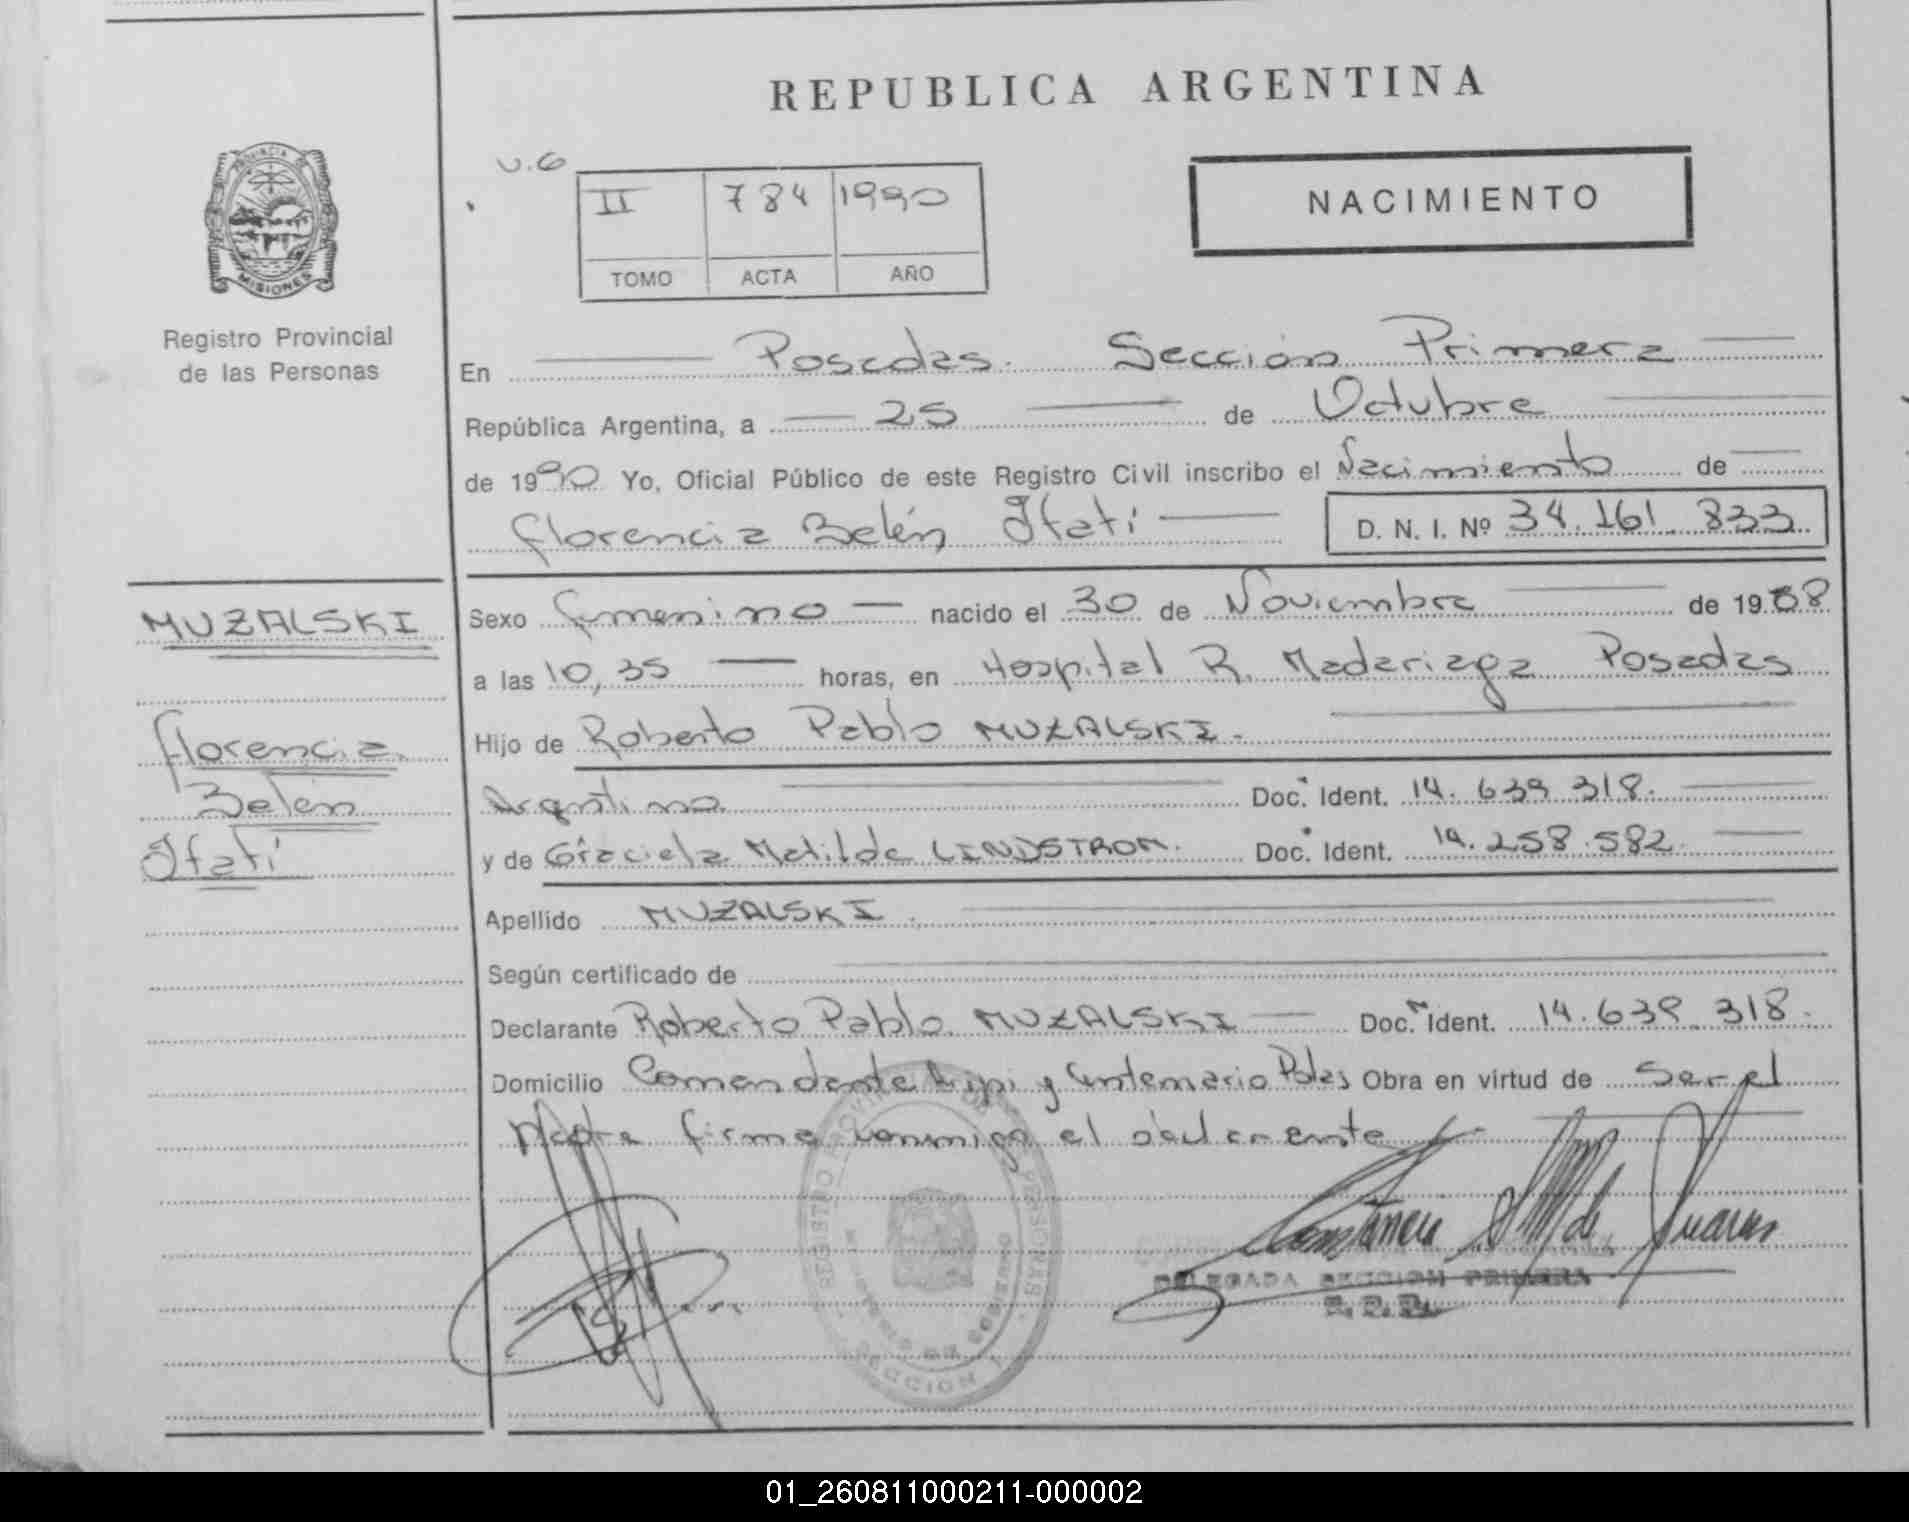 REPUBLICA ARGENTINA
PROVINCIA DE
MISIONES
Registro Provincial
de las Personas
v.6
II 784 1990
TOMO ACTA AÑO
NACIMIENTO
En Posadas. Sección Primera
República Argentina, a 25 de Octubre
de 1990 Yo, Oficial Público de este Registro Civil inscribo el Nacimiento de
Florencia Belén Itatí D. N. I. Nº 34.161.833
MUZALSKI
Florencia
Belén
Itatí
Sexo femenino nacido el 30 de Noviembre de 1988
a las 10,35 horas, en Hospital R. Madariaga Posadas
Hijo de Roberto Pablo MUZALSKI.
Argentino Doc. Ident. 14.639.318.
y de Graciela Matilde LINDSTROM. Doc. Ident. 14.258.582.
Apellido MUZALSKI.
Según certificado de
Declarante Roberto Pablo MUZALSKI Doc. Ident. 14.639.318.
Domicilio Comandante y Centenario Pdas Obra en virtud de ser el
Padre firma conmigo el declarante
REGISTRO PROVINCIAL DE PERSONAS
MINISTERIO DE GOBIERNO
SECCION
Constancia de Juarez
DELEGADA SECCION PRIMERA
R.P.P.
01_260811000211-000002